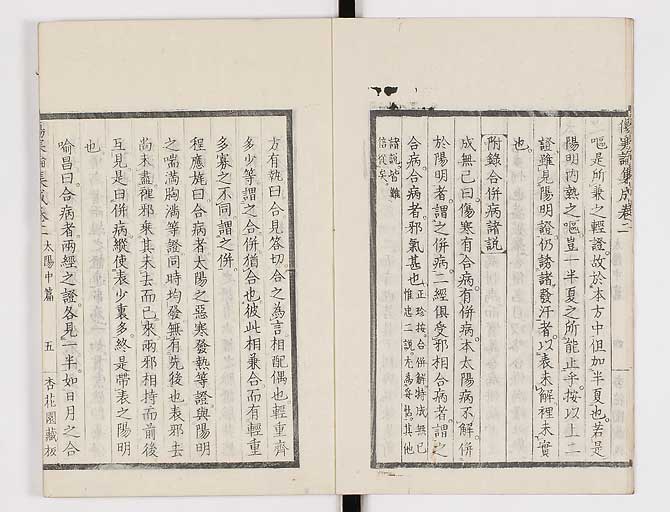 傷寒論集成卷二
太陽中篇
嘔是所兼之輕證故於本方中但加半夏也若是
陽明內熱之嘔豈一半夏之所能止乎按以上二
證雖見陽明證仍諸諸發汗者以表未解裡未實
也
附錄合併病諸說
成無已曰傷寒有合病有併病本太陽病不解併
於陽明者謂之併病二經俱受邪相合病者謂之
合病合病者邪氣甚也正珍按合併解特成無已
惟忠二說尤為妥當其他
諸說皆難
信從矣
方有執曰合見答切合之為言相配偶也輕重齊
多少等謂之合併猶合也彼此相兼合而有輕重
多寡之不同謂之併
程應旄曰合病者太陽之惡寒發熱等證與陽明
之喘滿胸滿等證同時均發無有先後也表邪去
尚未盡裡邪來其未去而已來兩邪相持而前後
互見是曰併病縱使表少裏多終是帶表之陽明
也
喻昌曰合病者兩經之證各見一半如日月之合
傷寒論集成卷二
太陽中篇
五
杏花園藏板